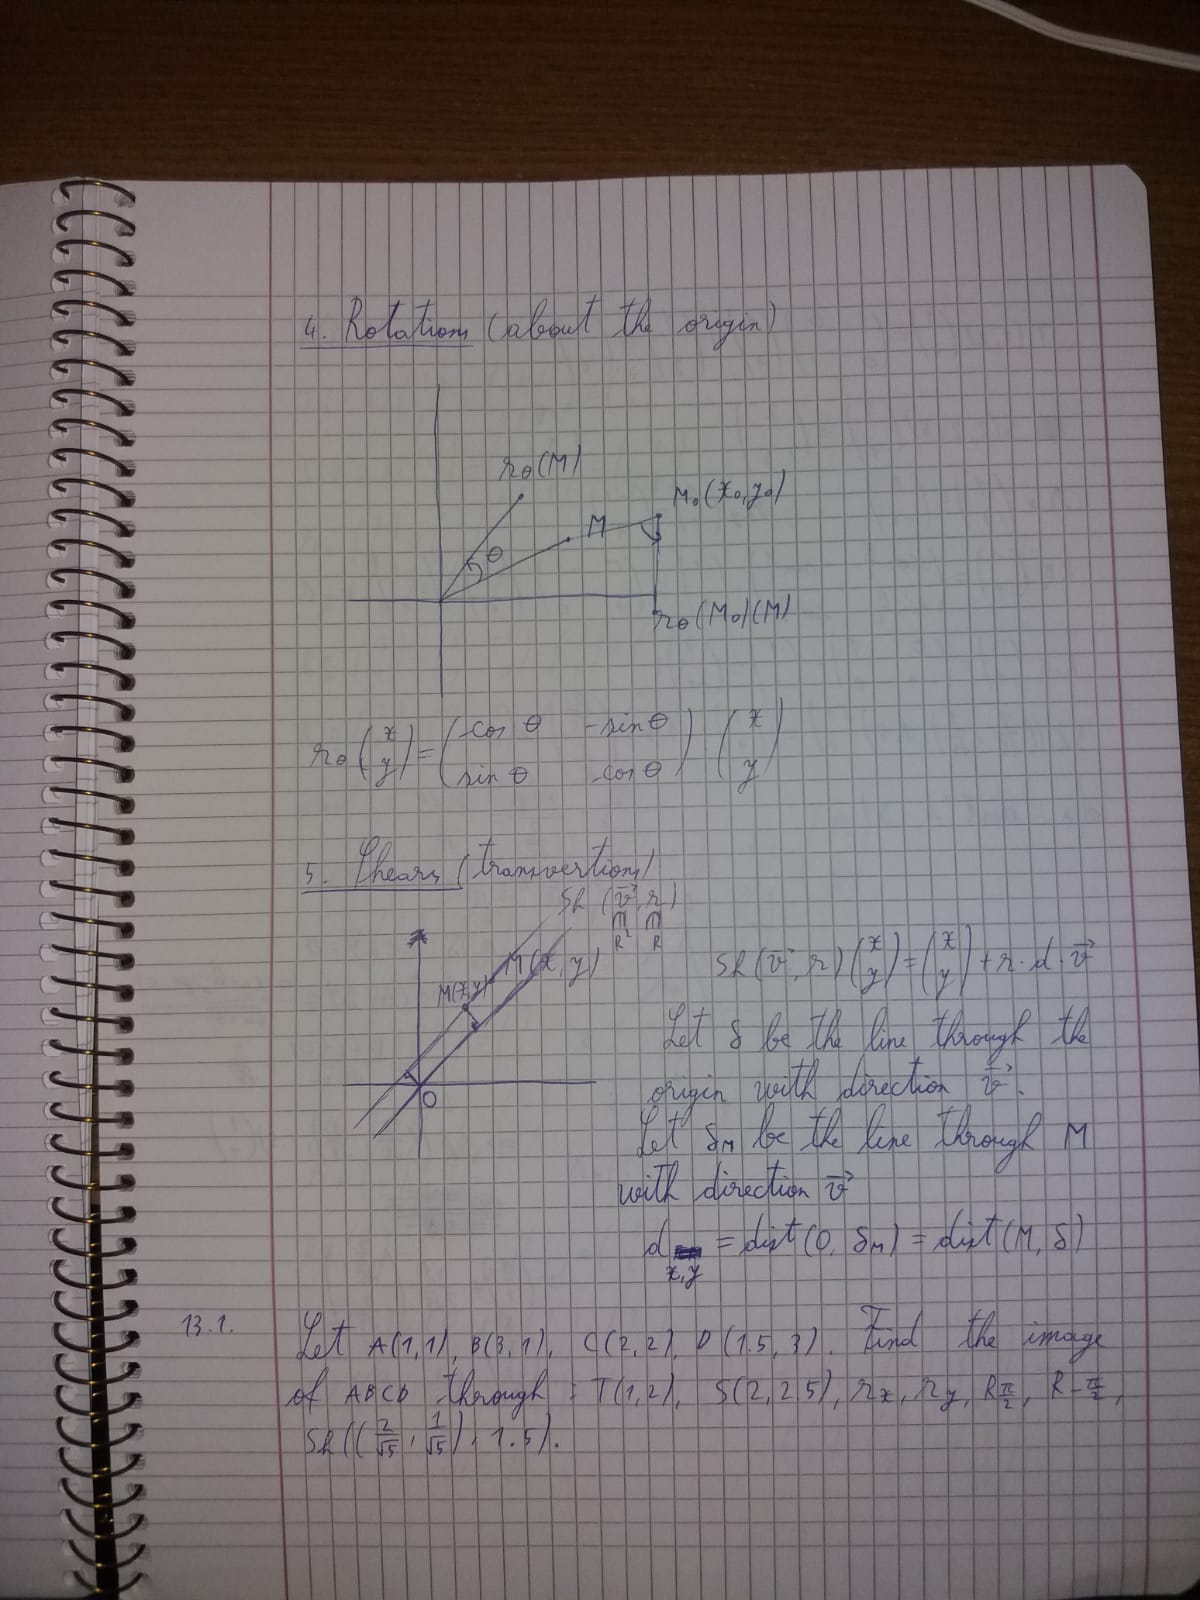 4. Rotations (about the origin)
rθ(M)
M₀(x₀,y₀)
θ
M
rθ(M₀)(M)
rθ (x y) = (cos θ -sin θ sin θ cos θ) · (x y)
5. Shears (transvertions)
Sh (v⃗, r)
R² R
M(x,y)
M(x,y)
Sh(v⃗, r) (x y) = (x y) + r · d · v⃗
Let δ be the line through the
origin with direction v⃗.
O
Let δM be the line through M
with direction v⃗
d x,y = dist(O, δM) = dist(M, δ)
13.1. Let A(1,1), B(3,1), C(2,2), D(1.5,3). Find the image
of ABCD through: T(1,2), S(2,2.5), rx, ry, Rπ/2, R-π/2,
Sh((2/√5, 1/√5), 1.5).